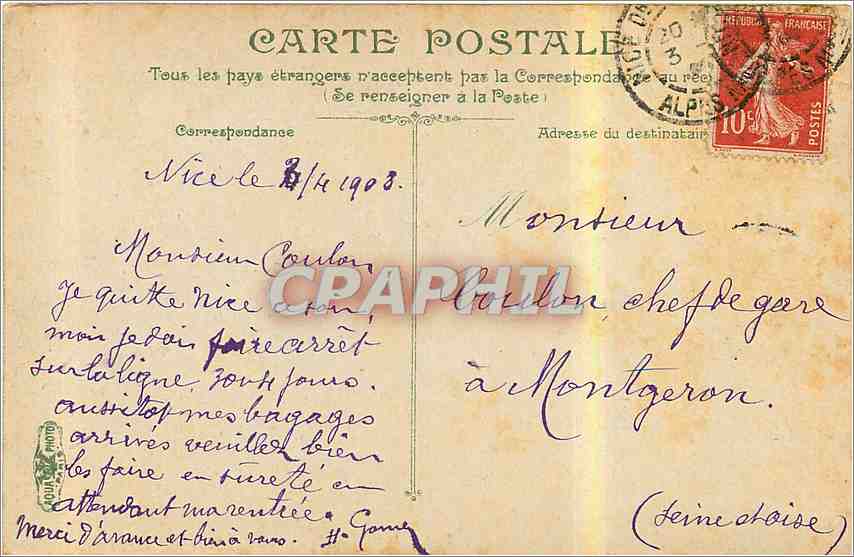 CARTE POSTALE
Tous les pays étrangers n'acceptent pas la Correspondance au rec
(Se renseigner à la Poste)
Correspondance
Adresse du destinatair
RÉPUBLIQUE FRANÇAISE
10c POSTES
NICE
20
3
ALPES
Nice le 3/4 1908.
Monsieur Coulon
Je quitte Nice ce soir,
mais je dois faire arrêt
sur la ligne 3 ou 4 jours.
aussitot mes bagages
arrivés veuillez bien
les faire en sureté en
attendant ma rentrée.
Merci d'avance et bien à vous. H.
Monsieur
Coulon, chef de gare
à Montgeron.
(Seine et oise)
AQUA PHOTO
PARIS
CPAPHIL